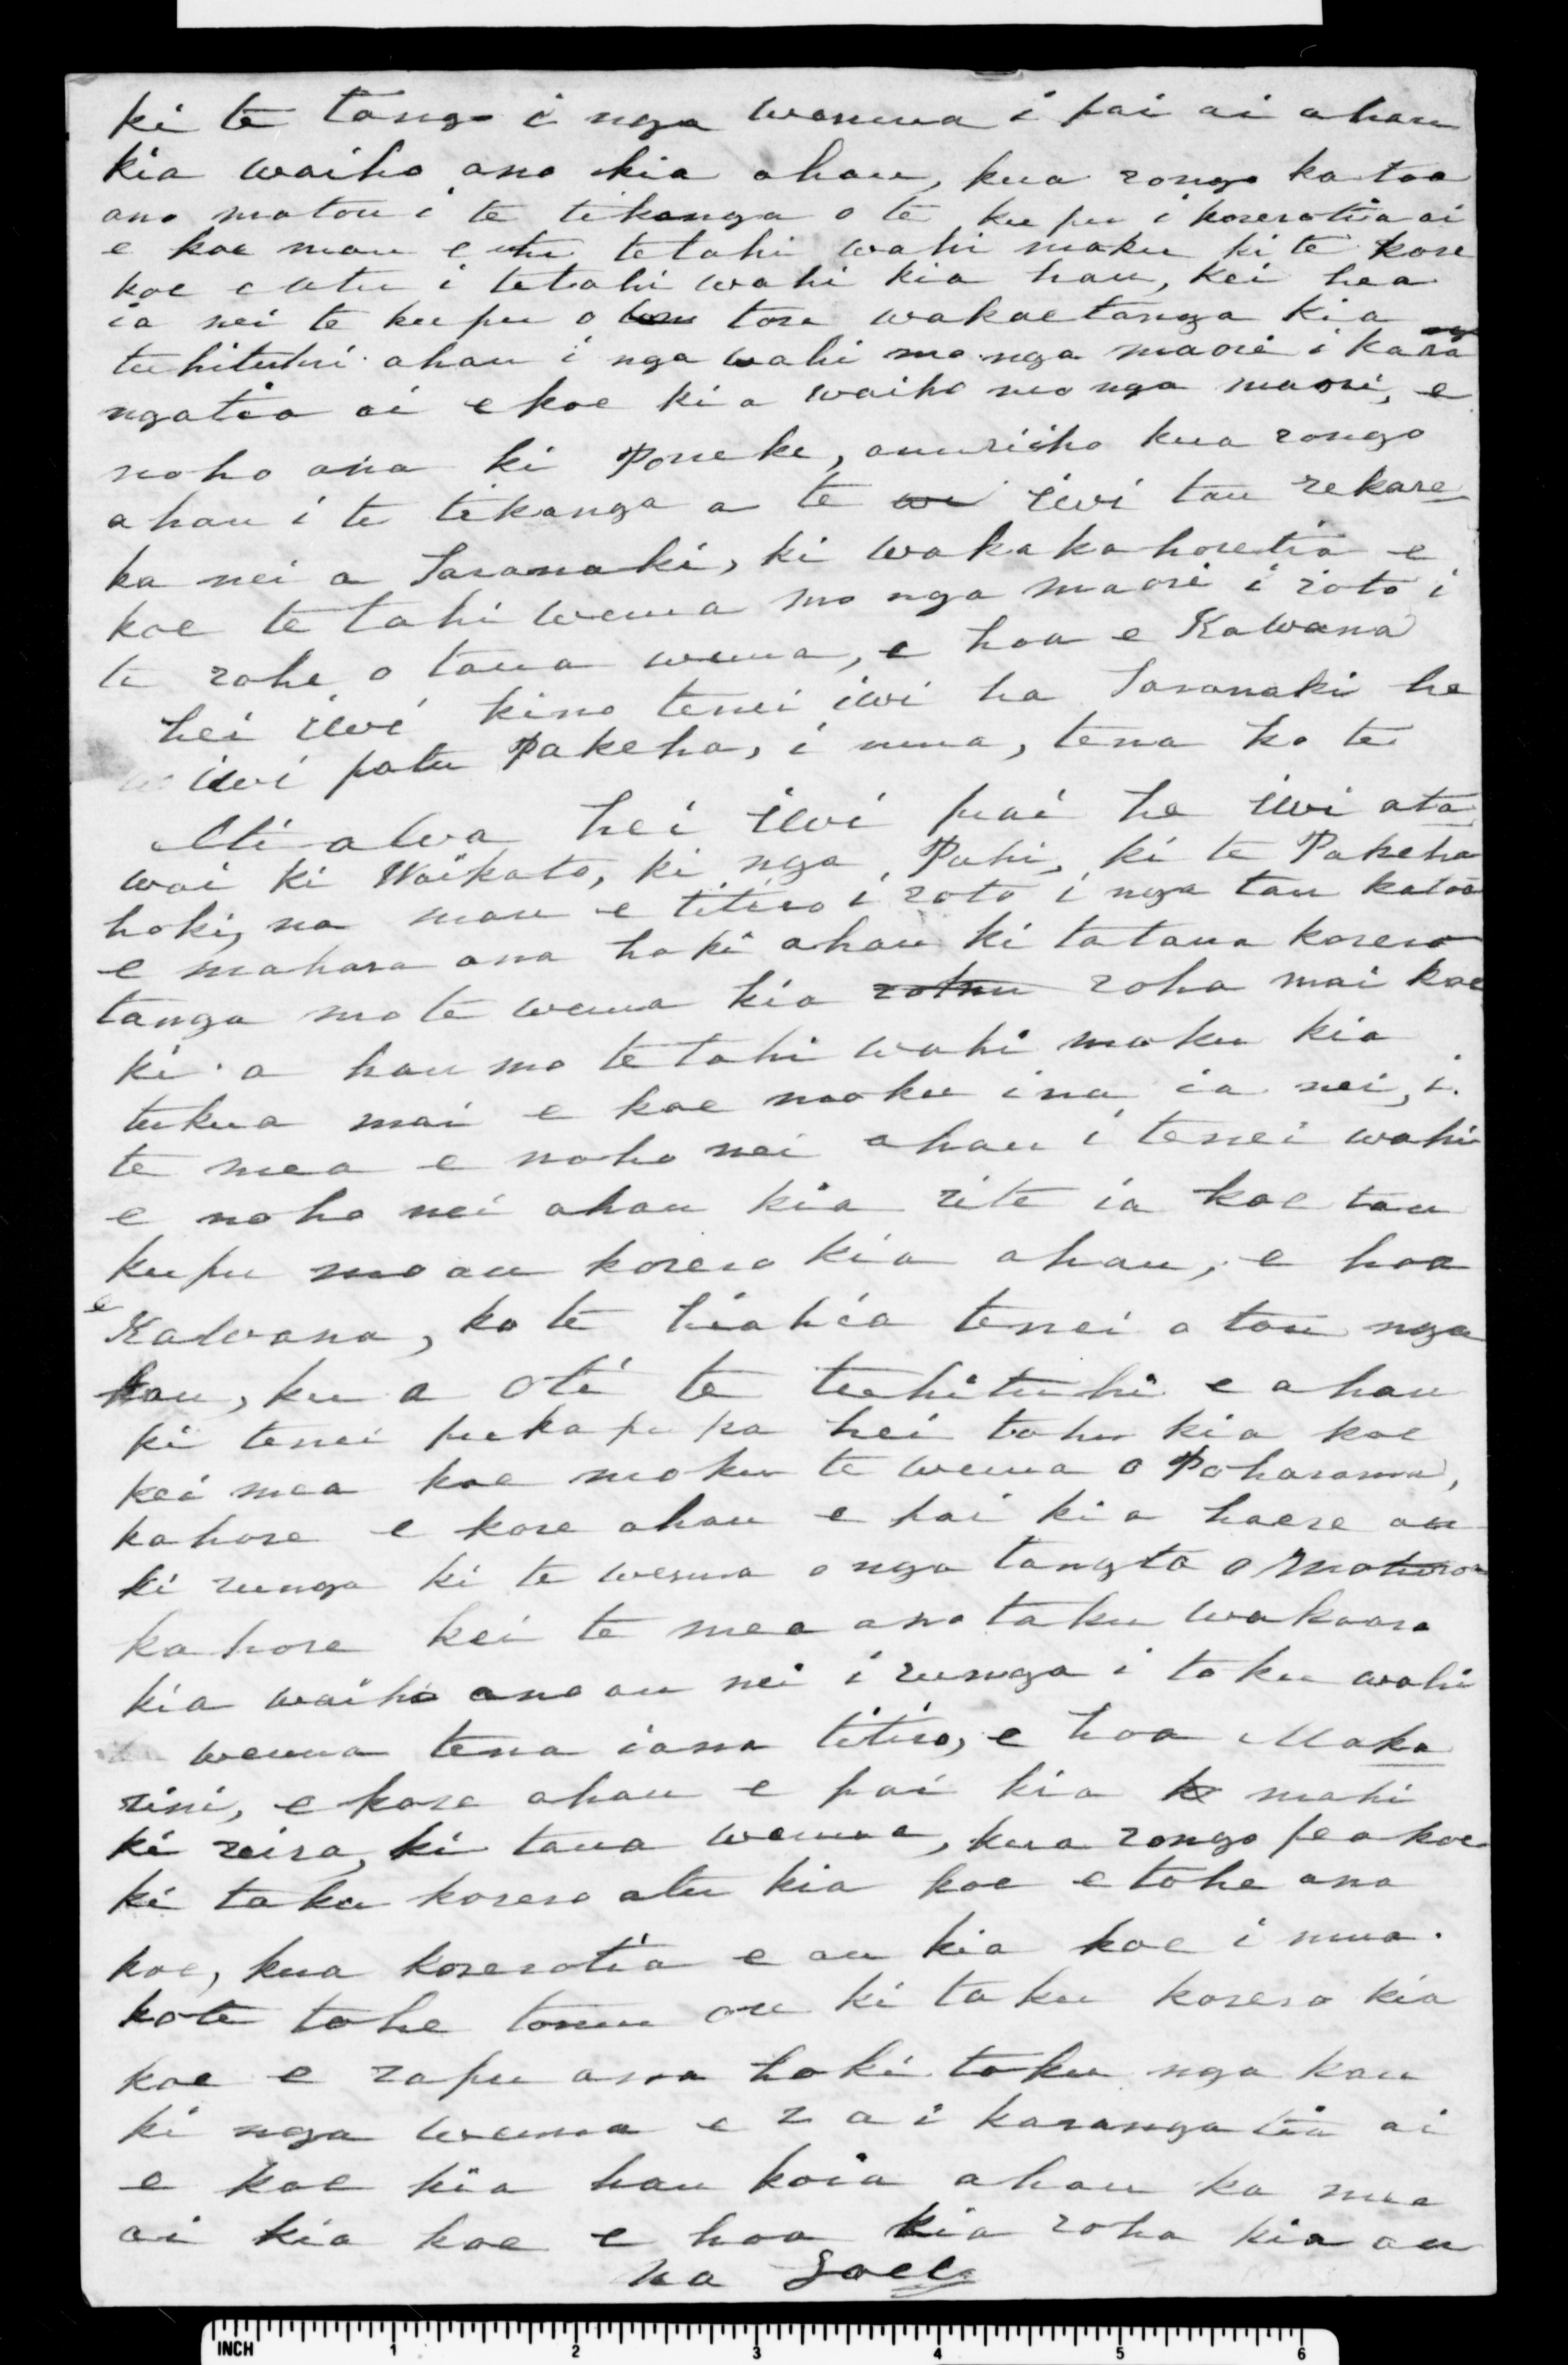 ki te tango i nga wenua i pai ai ahau
kia waiho ano kia ahau, kua rongo katoa
ano matou i te tikanga o te kupu i korerotia ai
e koe mau e utu tetahi wahi maku ki te kore
koe e utu i tetahi wahi kia hau, kei hea
ia nei te kupu o tora wakaetanga kia
tuhituhi ahau i nga wahi mo nga maori i kara
ngatia ai e koe kia waiho mo nga maori, e
noho ana ki Poneke, amuriiho kua rongo
ahau i te tikanga a te iwi tau rekare
ka nei a Taranaki, ki wakakahoretia e
koe te tahi wenua mo nga maori i roto i
te rohe o taua wenua, e hoa e Kawana
hei iwi kino tenei iwi ha Taranaki he
iwi patu Pakeha, i mua, tena ko te
Ati awa hei iwi pai he iwi ata
wai ki Waikato, ki nga Puhi, ki te Pakeha
hoki, na mau e titiro i roto i nga tau katoa
e mahara ana hoki ahau ki ta taua korero
tanga mo te wenua kia roha mai koe
ki a hau mo te tahi wahi maku kia
tukua mai e koe nooku ina ia nei, i
te mea e noho nei ahau i tenei wahi
e noho nei ahau kia rite ia koe tau
kupu mo au korero kia ahau, e hoa
e Kawana, ko te hiahia tenei o tou nga
kau, ku a oti te tuhituhi e ahau
ki tenei pukapuka hei tohu kia koe
kei mea koe moku te wenua o Poharama,
kahore e kore ahau e pai kia haere au
ki runga ki te wenua o nga tangta o Moturoa
kahore kei te mea ano taku wakaaro
kia waiho ano au nei i runga i toku wahi
wenua tena iana titiro, e hoa Maka
rini, e kore ahau e pai kia mahi
ki reira, ki taua wenua, kua rongo pea koe
ki taku korero atu kia koe e tohe ana
koe, kua korerotia e au kia koe i mua.
ko te tohe tonu au ki taku korero kia
koe e rapu ana hoki toku nga kau
ki nga wenua e rai karangatia ai
e koe kia hau koia ahau ka mea
ai kia koe e hoa kia roha kia au
na